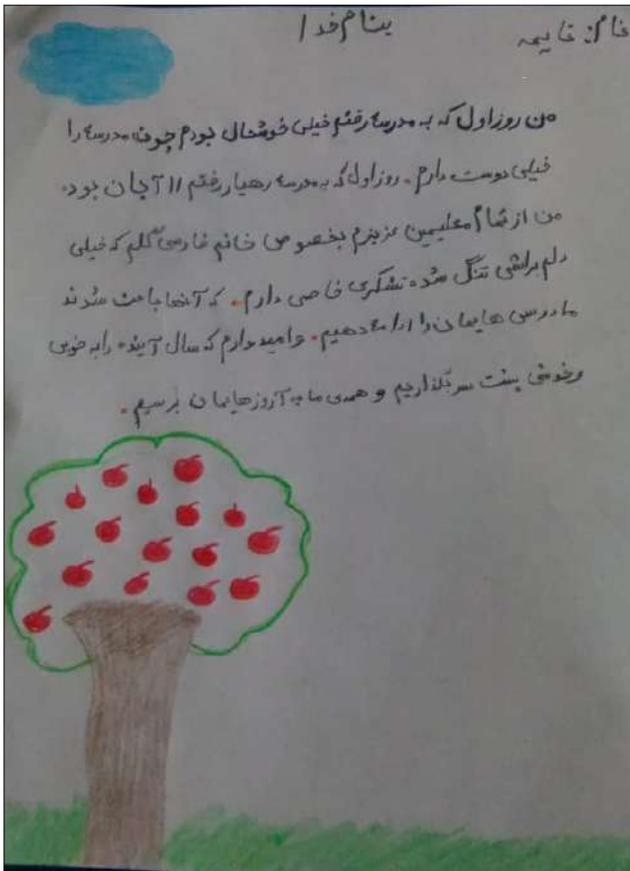 بنام خدا
نام: فایمه
من روز اول که به مدرسه رفتم خیلی خوشحال بودم چون مدرسه را
خیلی دوست دارم. روز اول که به مدرسه رهیار رفتم ۱۱ آبان بود.
من از تمام معلیمین عزیزم بخصوص خانم فارسی گلم که خیلی
دلم براشی تنگ شده تشکری خاصی دارم. که آنها باعث شدند
ما درس هایمان را ادامه دهیم. و امیدوارم که سال آینده را به خوبی
و خوشی پشت سر بگذاریم و همه‌ی ما به آروزهایمان برسیم.